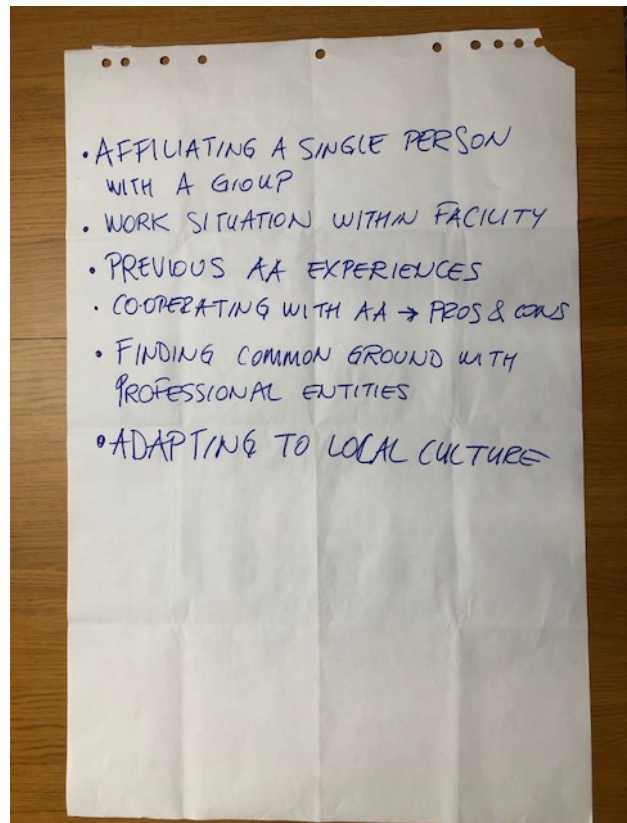 • AFFILIATING A SINGLE PERSON
WITH A GROUP
• WORK SITUATION WITHIN FACILITY
• PREVIOUS AA EXPERIENCES
• COOPERATING WITH AA → PROS & CONS
• FINDING COMMON GROUND WITH
PROFESSIONAL ENTITIES
• ADAPTING TO LOCAL CULTURE